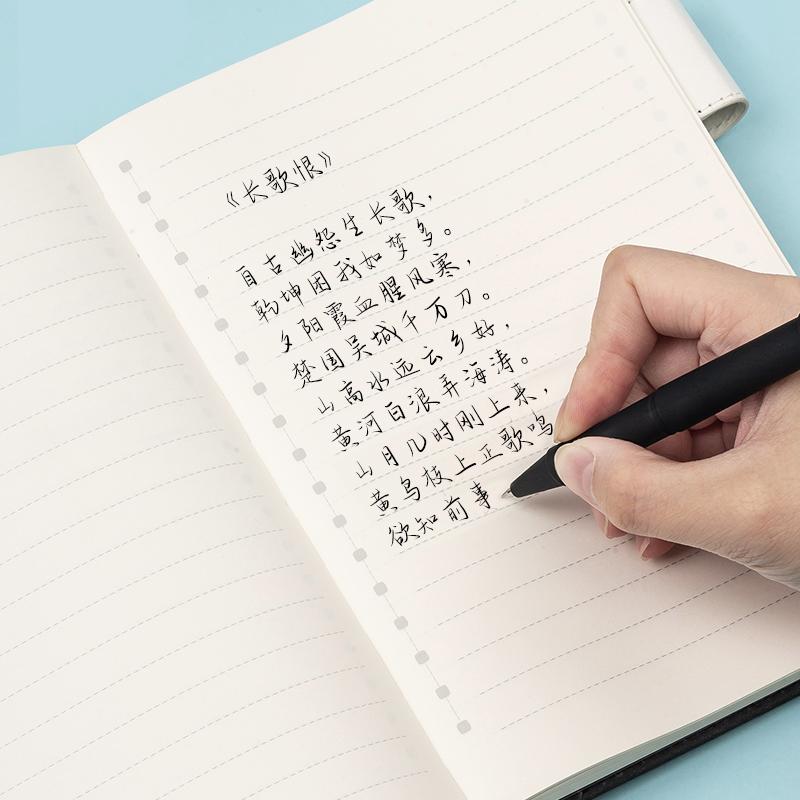 《长歌恨》
自古幽怨生长歌，
乾坤困我如梦多。
夕阳霞血腥风寒，
楚国吴城千万刀。
山高水远云乡好，
黄河白浪弄海涛。
山月几时刚上来，
黄鸟枝上正歌鸣
欲知前事